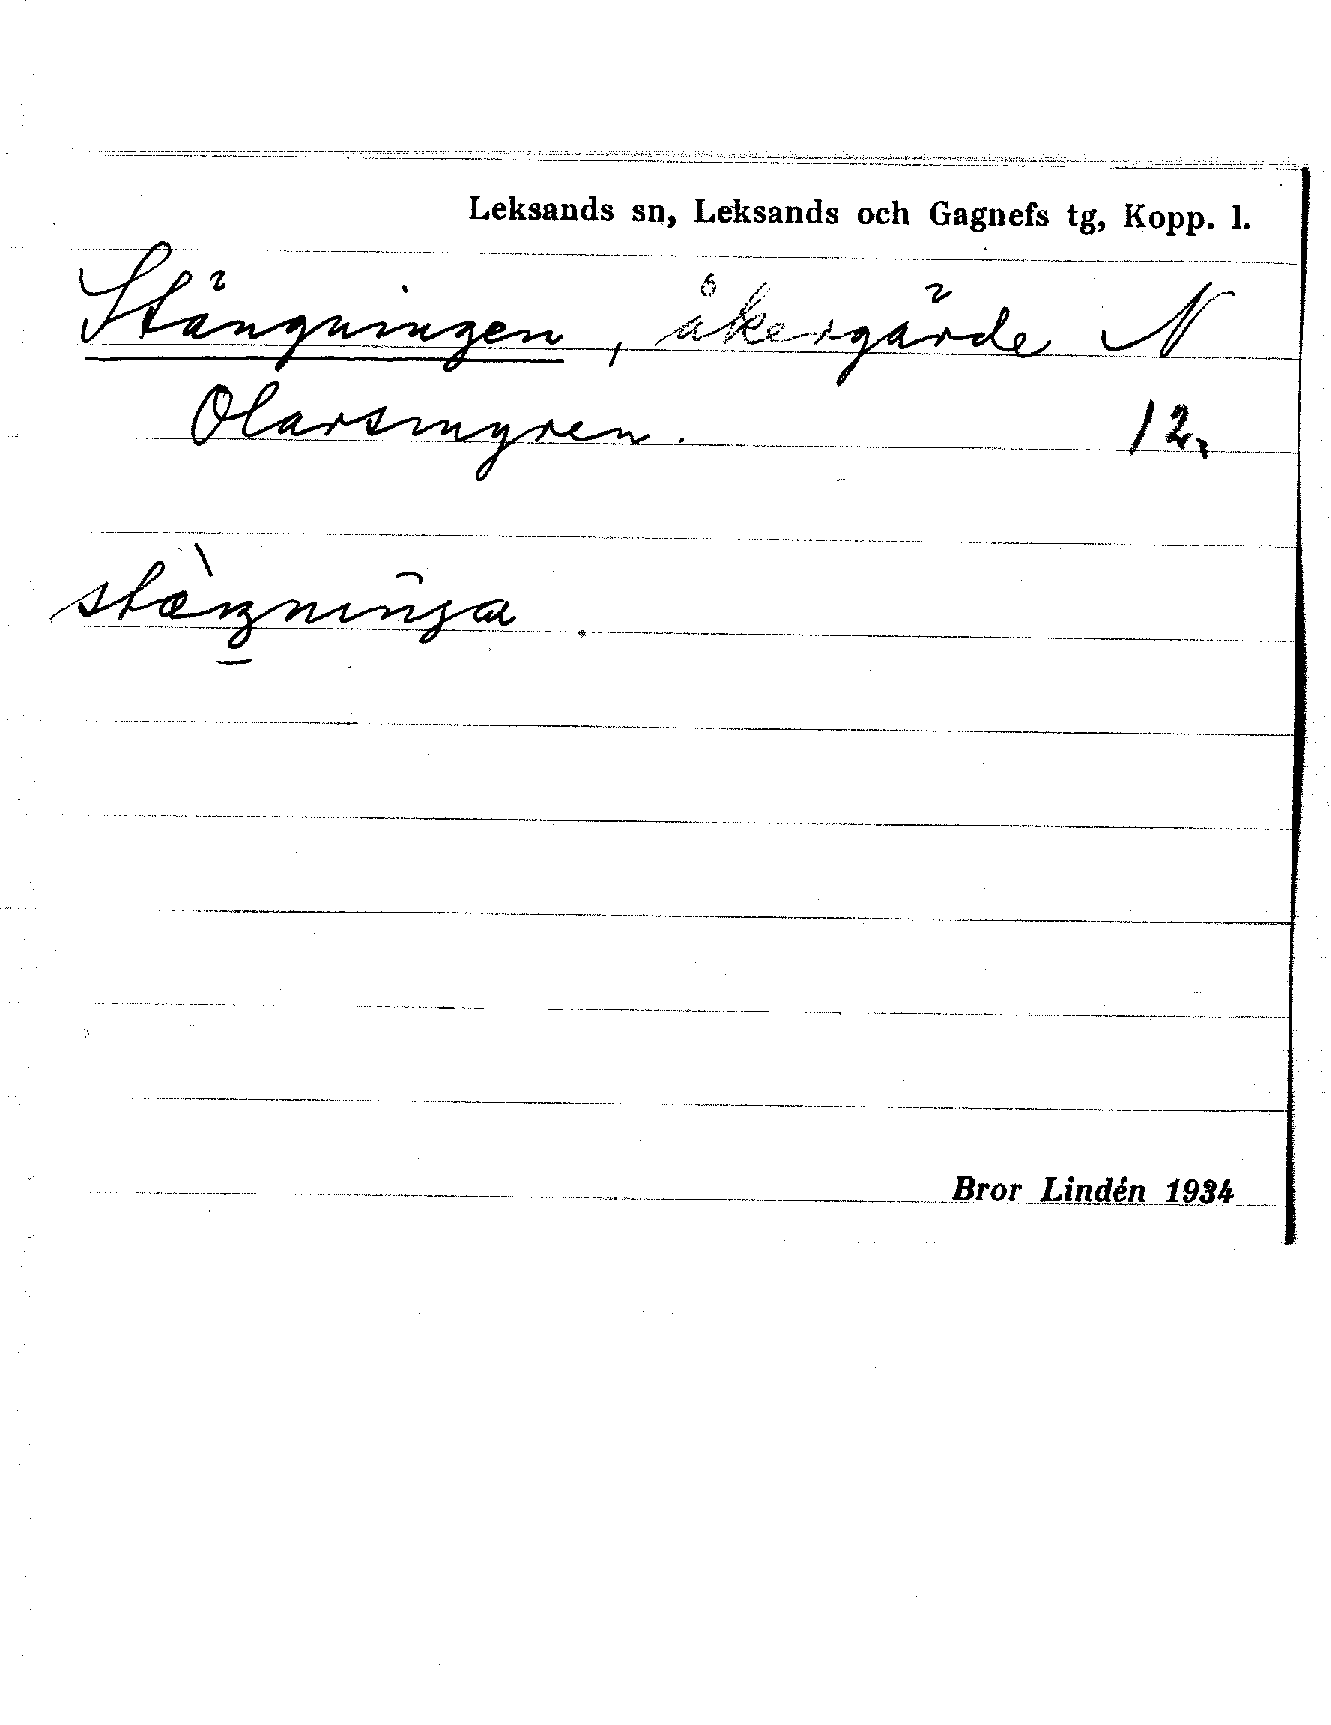 Leksands sn, Leksands och Gagnefs tg, Kopp. l.
Stängningen, åkergärde N
Olarsmyren. 12.
Bror Lindén 1934